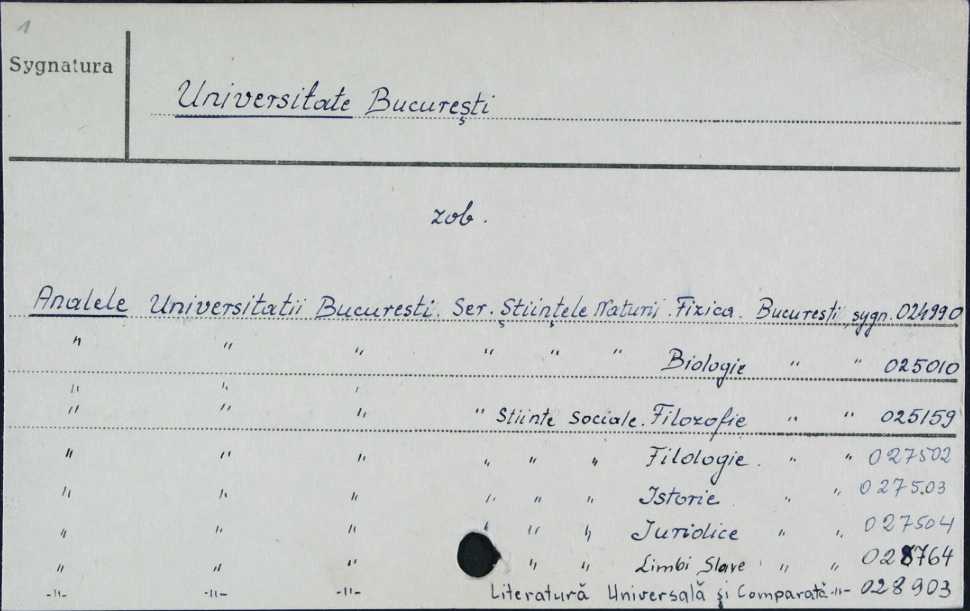 1
Sygnatura
Universitate București
zob.
Analele Universitatii Bucuresti. Ser. Științele Naturii. Fizica. Bucuresti sygn. 024990
" " " " " " Biologie " " 025010
" " "
" " " " Stiinte Sociale. Filozofie " " 025159
" " " " " " Filologie. " " 027502
" " " " " " Istorie " " 027503
" " " " " " Juridice " " 027504
" " " " " Limbi Slave " " 028764
-"- -"- -"- Literatură Universală și Comparată -"- 028903